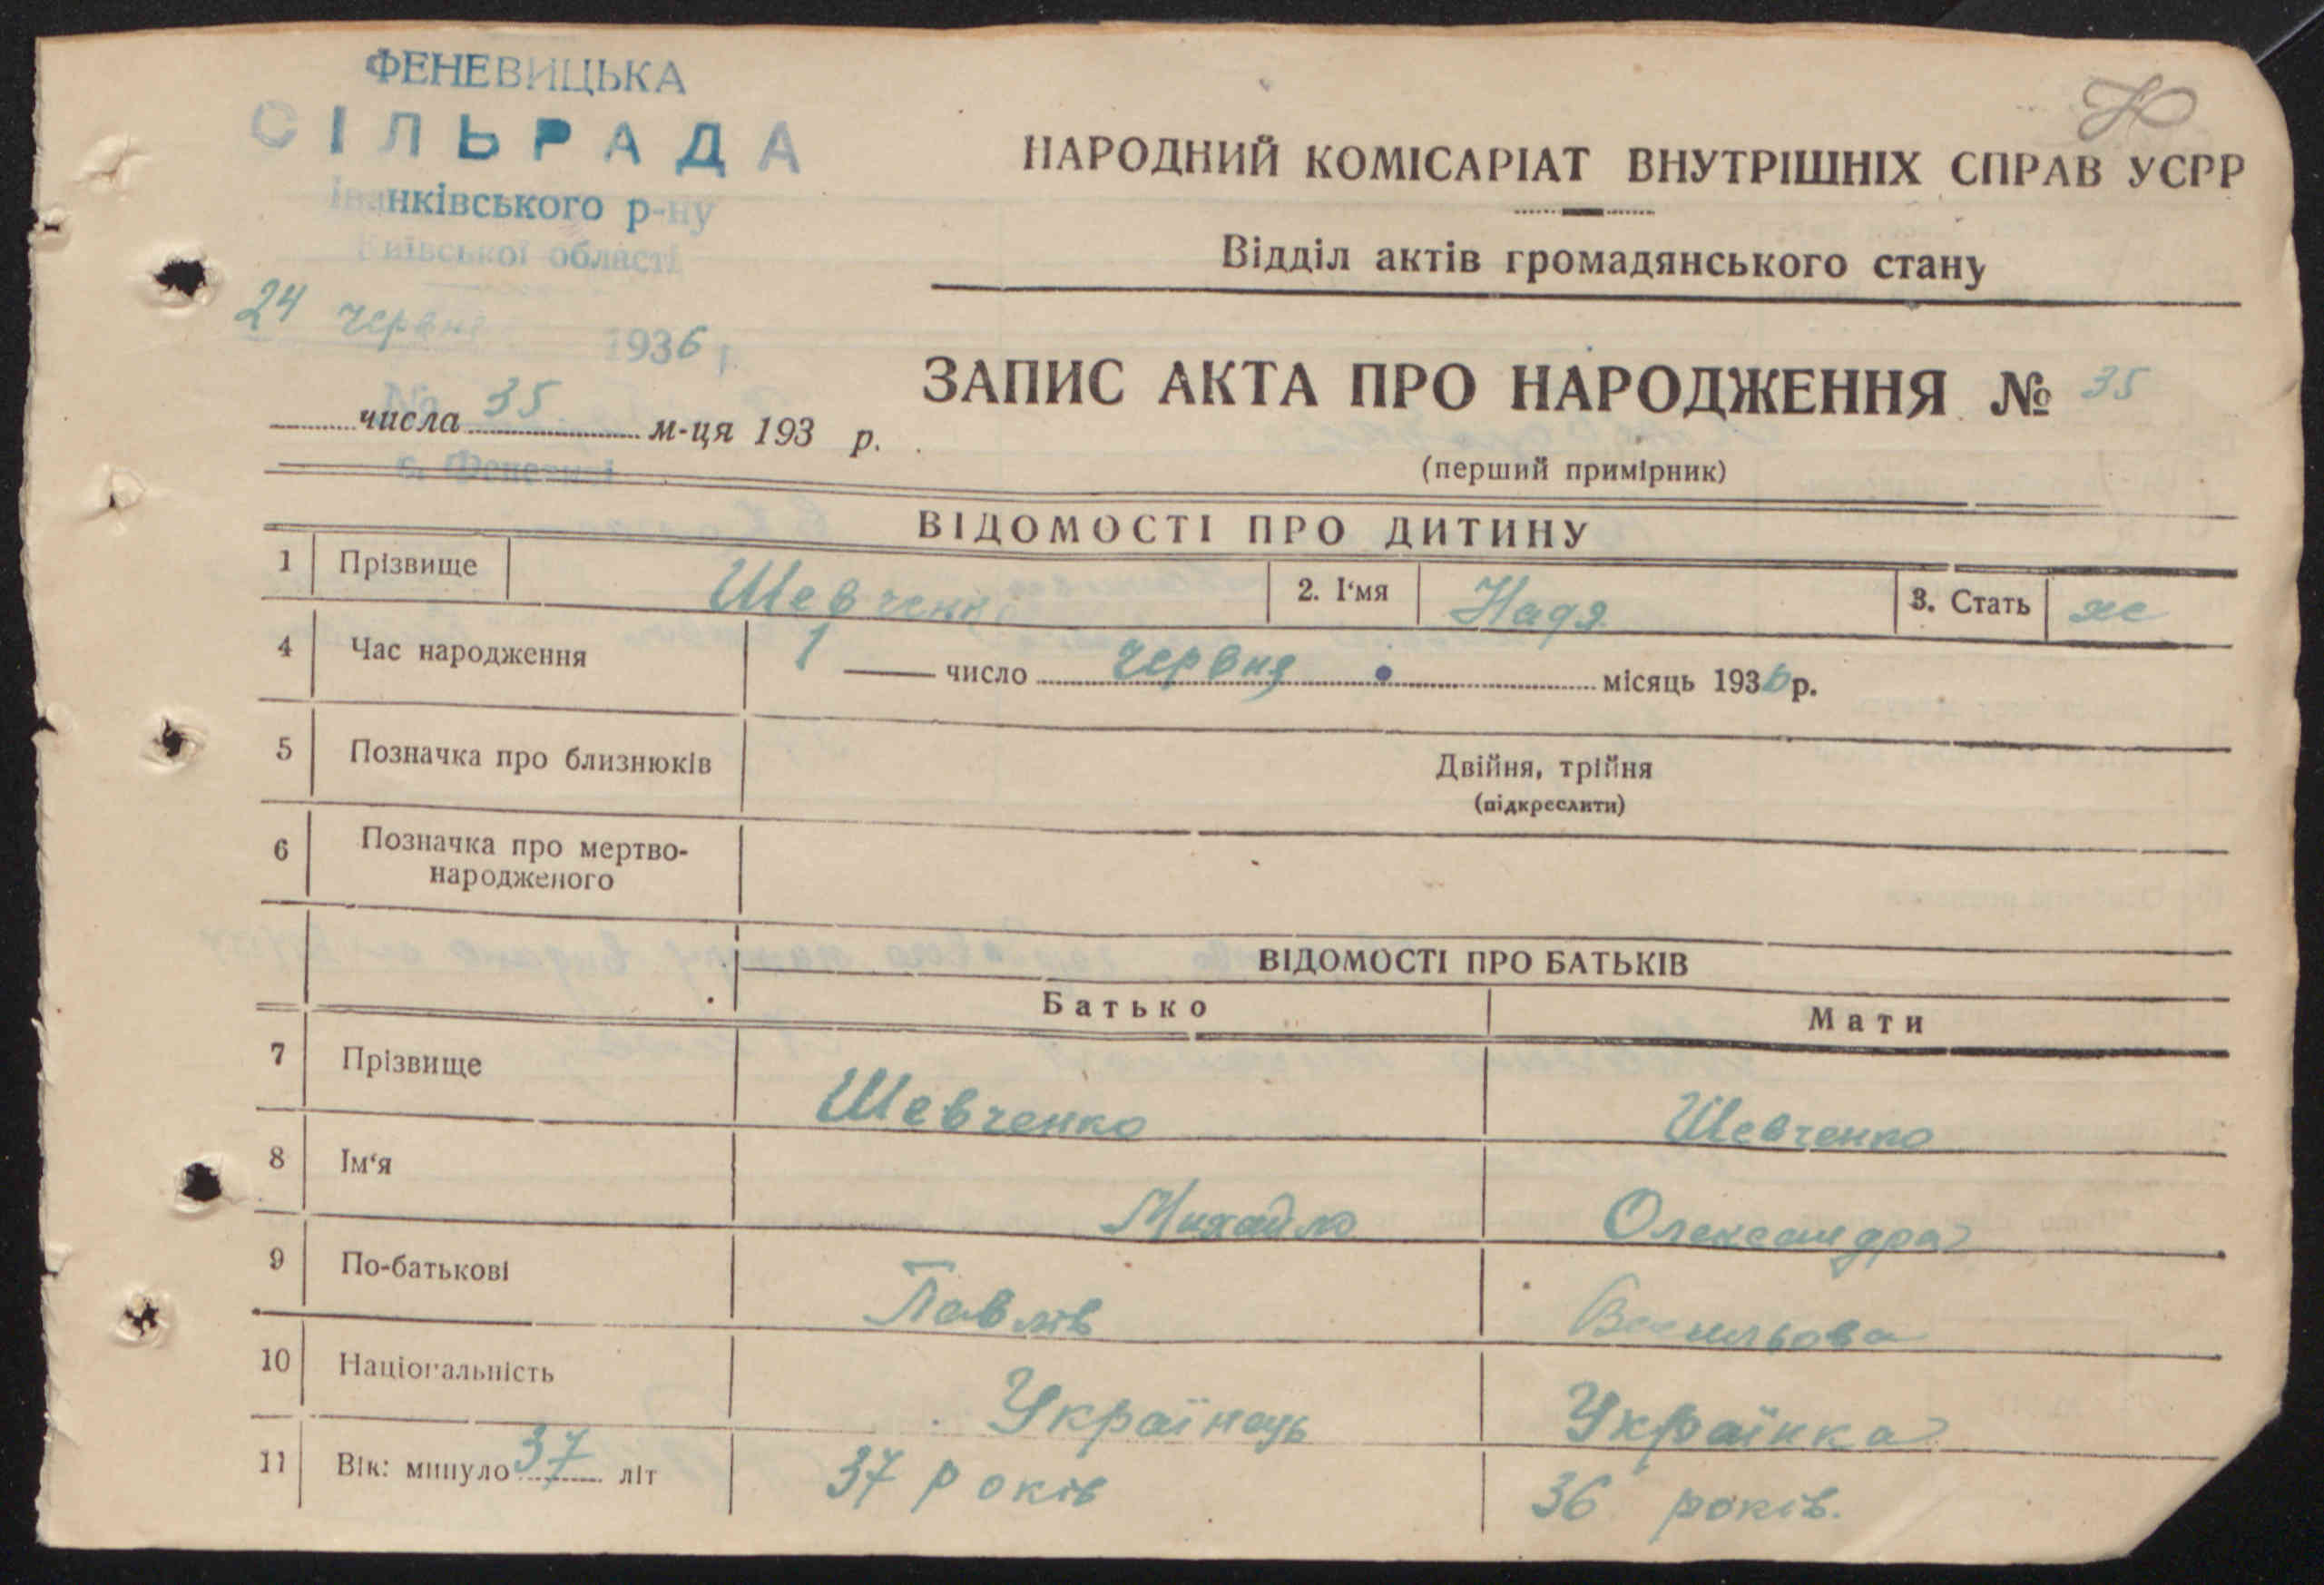 ФЕНЕВИЦЬКА
СІЛЬРАДА
Іванківського р-ну
Київської області
24 червня 1936 р.
№ 35
с. Феневичі
НАРОДНИЙ КОМІСАРІАТ ВНУТРІШНІХ СПРАВ УСРР
Відділ актів громадянського стану
числа м-ця 193 р.
ЗАПИС АКТА ПРО НАРОДЖЕННЯ № 35
(перший примірник)
ВІДОМОСТІ ПРО ДИТИНУ
1 Прізвище Шевченко 2. І'мя Надя 3. Стать ж
4 Час народження 1 число червня місяць 1936 р.
5 Позначка про близнюків Двійня, трійня
(підкреслити)
6 Позначка про мертво-
народженого
ВІДОМОСТІ ПРО БАТЬКІВ
Батько Мати
7 Прізвище Шевченко Шевченко
8 Ім'я Михайло Олександра
9 По-батькові Павлів Васильова
10 Національність Українець Українка
11 Вік: минуло 37 літ 37 років 36 років.